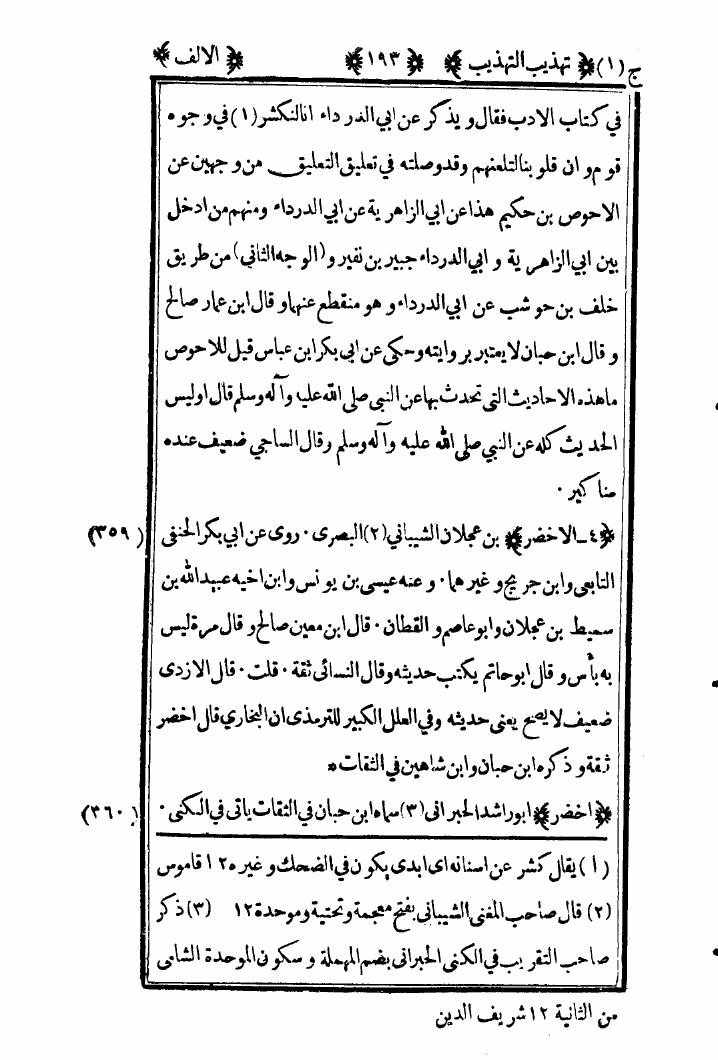 ج (١) ﴿ تهذيب التهذيب ﴾ ﴿ ١٩٣ ﴾ ﴿ الالف ﴾
في كتاب الادب فقال و يذكر عن ابي الدرداء انا لنكشر (١) في وجوه
قوم و ان قلوبنا لتلعنهم وقد وصلته في تعليق التعليق من وجهين عن
الاحوص بن حكيم هذا عن ابي الزاهرية عن ابي الدرداء ومنهم من ادخل
بين ابي الزاهرية و ابي الدرداء جبير بن نفير و (الوجه الثاني) من طريق
خلف بن حوشب عن ابي الدرداء و هو منقطع عنها و قال ابن عمار صالح
و قال ابن حبان لا يعتبر بروايته وحكى عن ابي بكر ابن عباس قيل للاحوص
ما هذه الاحاديث التي تحدث بها عن النبي صلى الله عليه وآله وسلم قال اوليس
الحديث كله عن النبي صلى الله عليه وآله وسلم وقال الساجي ضعيف عنده
مناكير ٠
﴿ ٤ـ الاخضر ﴾ بن عجلان الشيباني (٢) البصرى ٠ روى عن ابي بكر الحنفى (٣٥٩)
التابعى وابن جريج و غيرهما ٠ و عنه عيسى بن يونس وابن اخيه عبيد الله بن
سميط بن عجلان وابو عاصم و القطان ٠ قال ابن معين صالح و قال مرة ليس
به بأس و قال ابو حاتم يكتب حديثه وقال النسائى ثقة ٠ قلت ٠ قال الازدى
ضعيف لا يصح يعنى حديثه وفي العلل الكبير للترمذى ان البخاري قال اخضر
ثقة و ذكره ابن حبان وابن شاهين في الثقات *
﴿ اخضر ﴾ ابو راشد الحبرانى (٣) سماه ابن حبان في الثقات ياتى في الكنى ٠ (٣٦٠)
(١) يقال كشر عن اسنانه اى ابدى يكون في الضحك و غيره ١٢ قاموس
(٢) قال صاحب المغنى الشيبانى بفتح معجمة وتحتية وموحدة ١٢ (٣) ذكر
صاحب التقريب في الكنى الحبرانى بضم المهملة و سكون الموحدة الشامى
من الثانية ١٢ شريف الدين